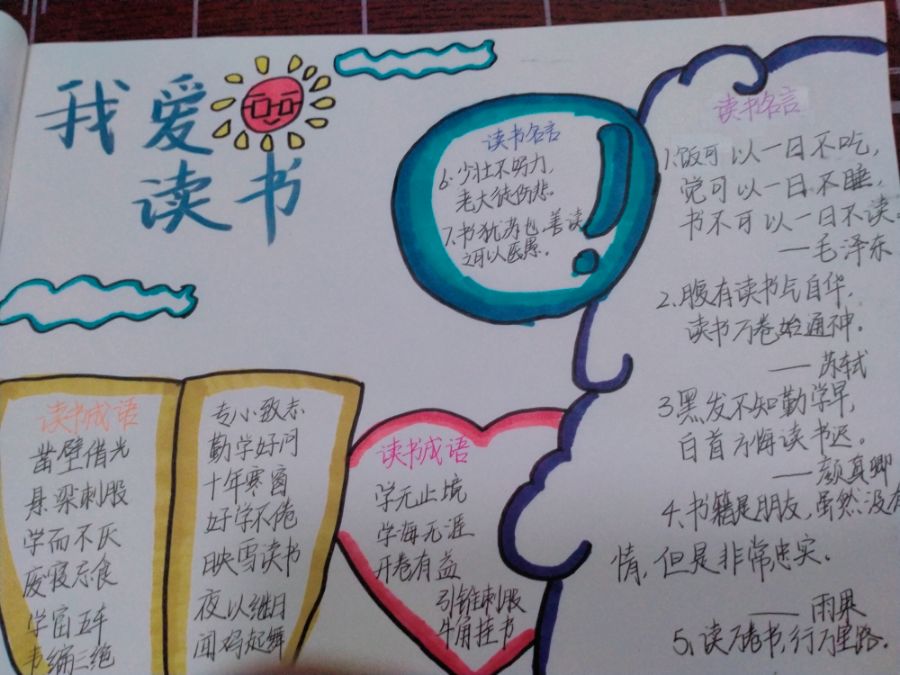 我爱
读书
读书名言
6.少壮不努力,
老大徒伤悲。
7.书犹药也,善读
之可以医愚。
读书名言
1.饭可以一日不吃,
觉可以一日不睡,
书不可以一日不读。
——毛泽东
2.腹有读书气自华,
读书万卷始通神。
——苏轼
3黑发不知勤学早,
白首方悔读书迟。
——颜真卿
4、书籍是朋友,虽然没有
情,但是非常忠实。
——雨果
5,读万卷书,行万里路.
读书成语
凿壁借光
悬梁刺股
学而不厌
废寝忘食
学富五车
韦编三绝
专心致志
勤学好问
十年寒窗
好学不倦
映雪读书
夜以继日
闻鸡起舞
读书成语
学无止境
学海无涯
开卷有益
引锥刺股
牛角挂书